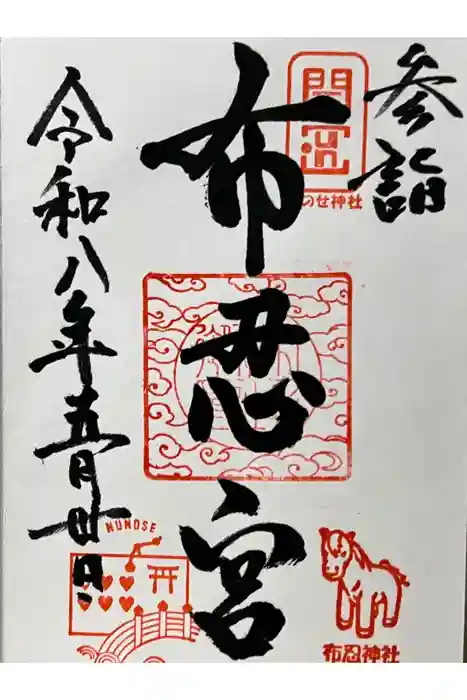 参詣
布忍宮
令和八年五月廿日
のせ神社
NUNOSE
布忍神社